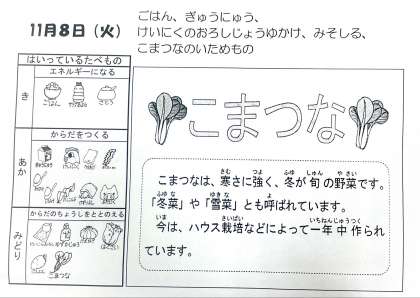 11月8日（火）
ごはん、ぎゅうにゅう、
けいにくのおろしじょうゆかけ、みそしる、
こまつなのいためもの
はいっているたべもの
き
エネルギーになる
ごはん
さとう
あか
からだをつくる
みどり
からだのちょうしをととのえる
こまつな
こまつな
こまつなは、寒さに強く、冬が旬の野菜です。
「冬菜」や「雪菜」とも呼ばれています。
今は、ハウス栽培などによって一年中作られ
ています。